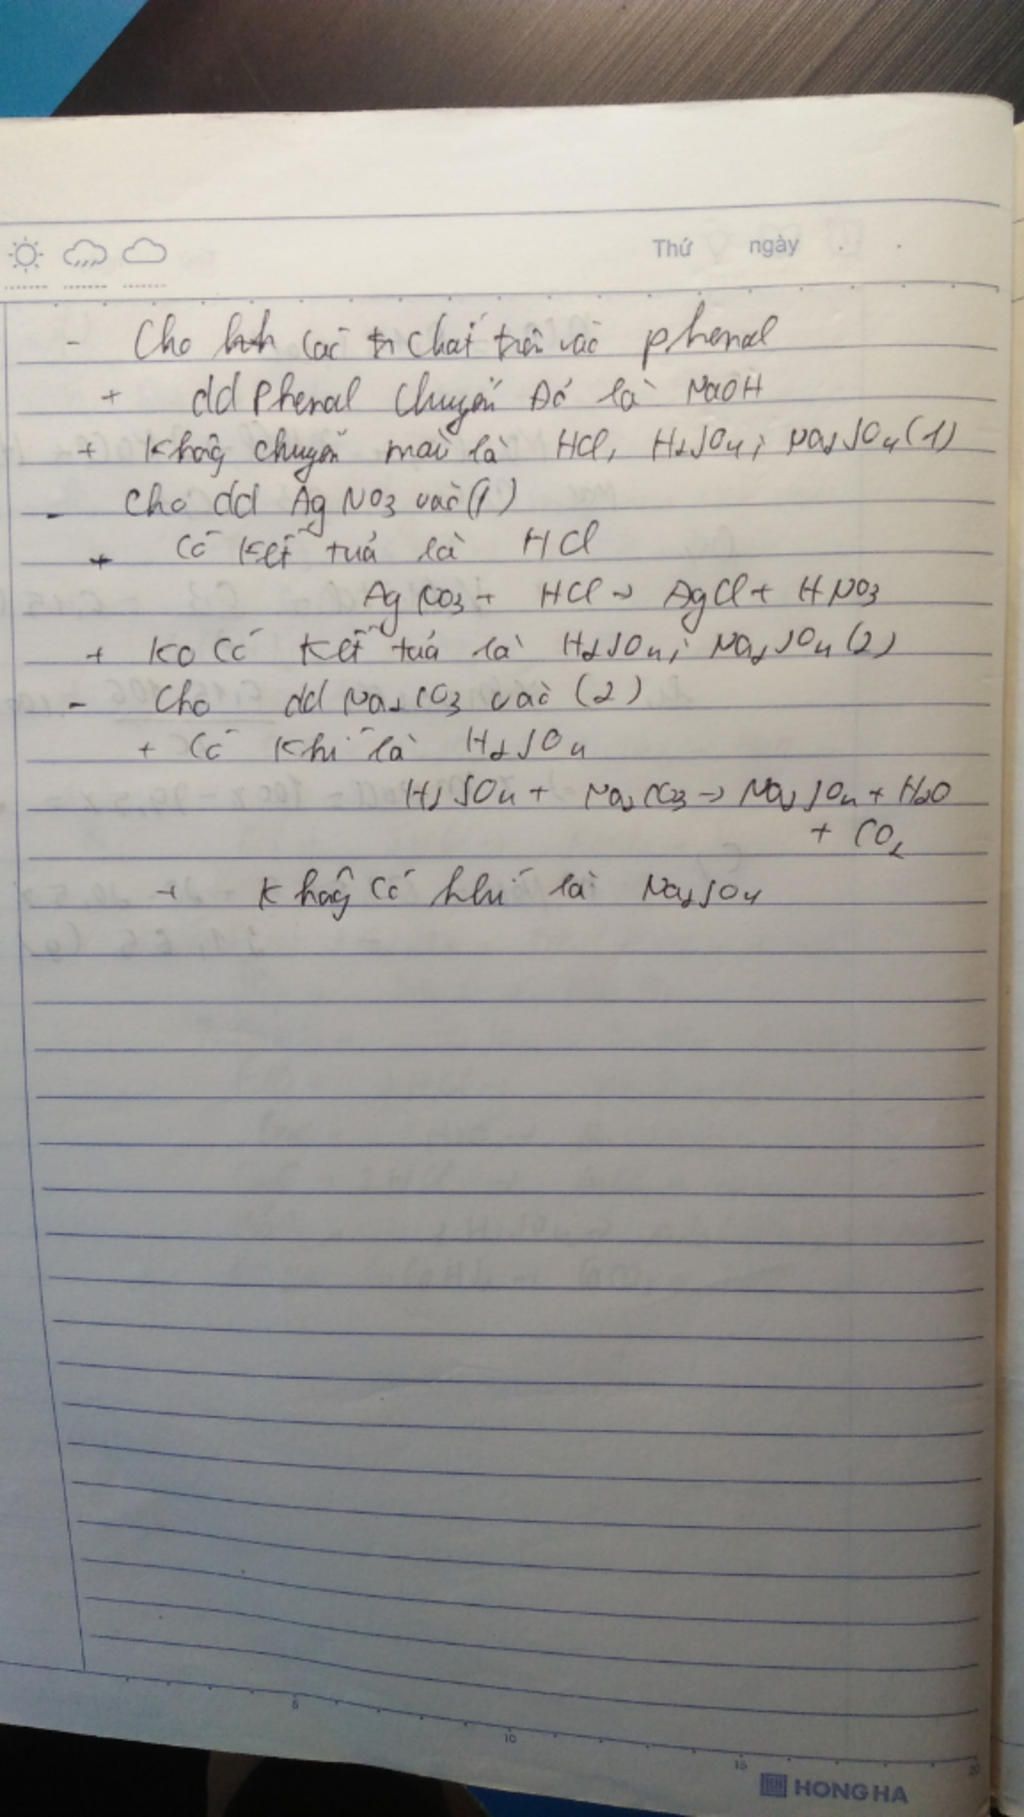 Thứ ngày . .
- Cho các chất trên vào phenol
+ dd Phenol chuyển Đỏ là NaOH
+ Không chuyển màu là HCl, H2SO4, Na2SO4 (1)
- Cho dd AgNO3 vào (1)
+ Có kết tủa là HCl
AgNO3 + HCl → AgCl + HNO3
+ Ko Có kết tủa là H2SO4, Na2SO4 (2)
- Cho dd Na2CO3 vào (2)
+ Có Khí là H2SO4
H2SO4 + Na2CO3 → Na2SO4 + H2O
+ CO2
+ Không Có khí là Na2SO4
5 10 15 20
HONG HA